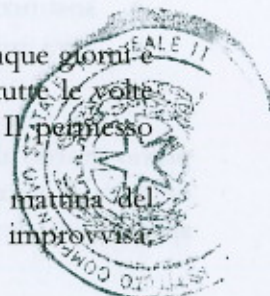 nque giorni e
tutte le volte
Il permesso
mattina del
improvvisa;
EALE II